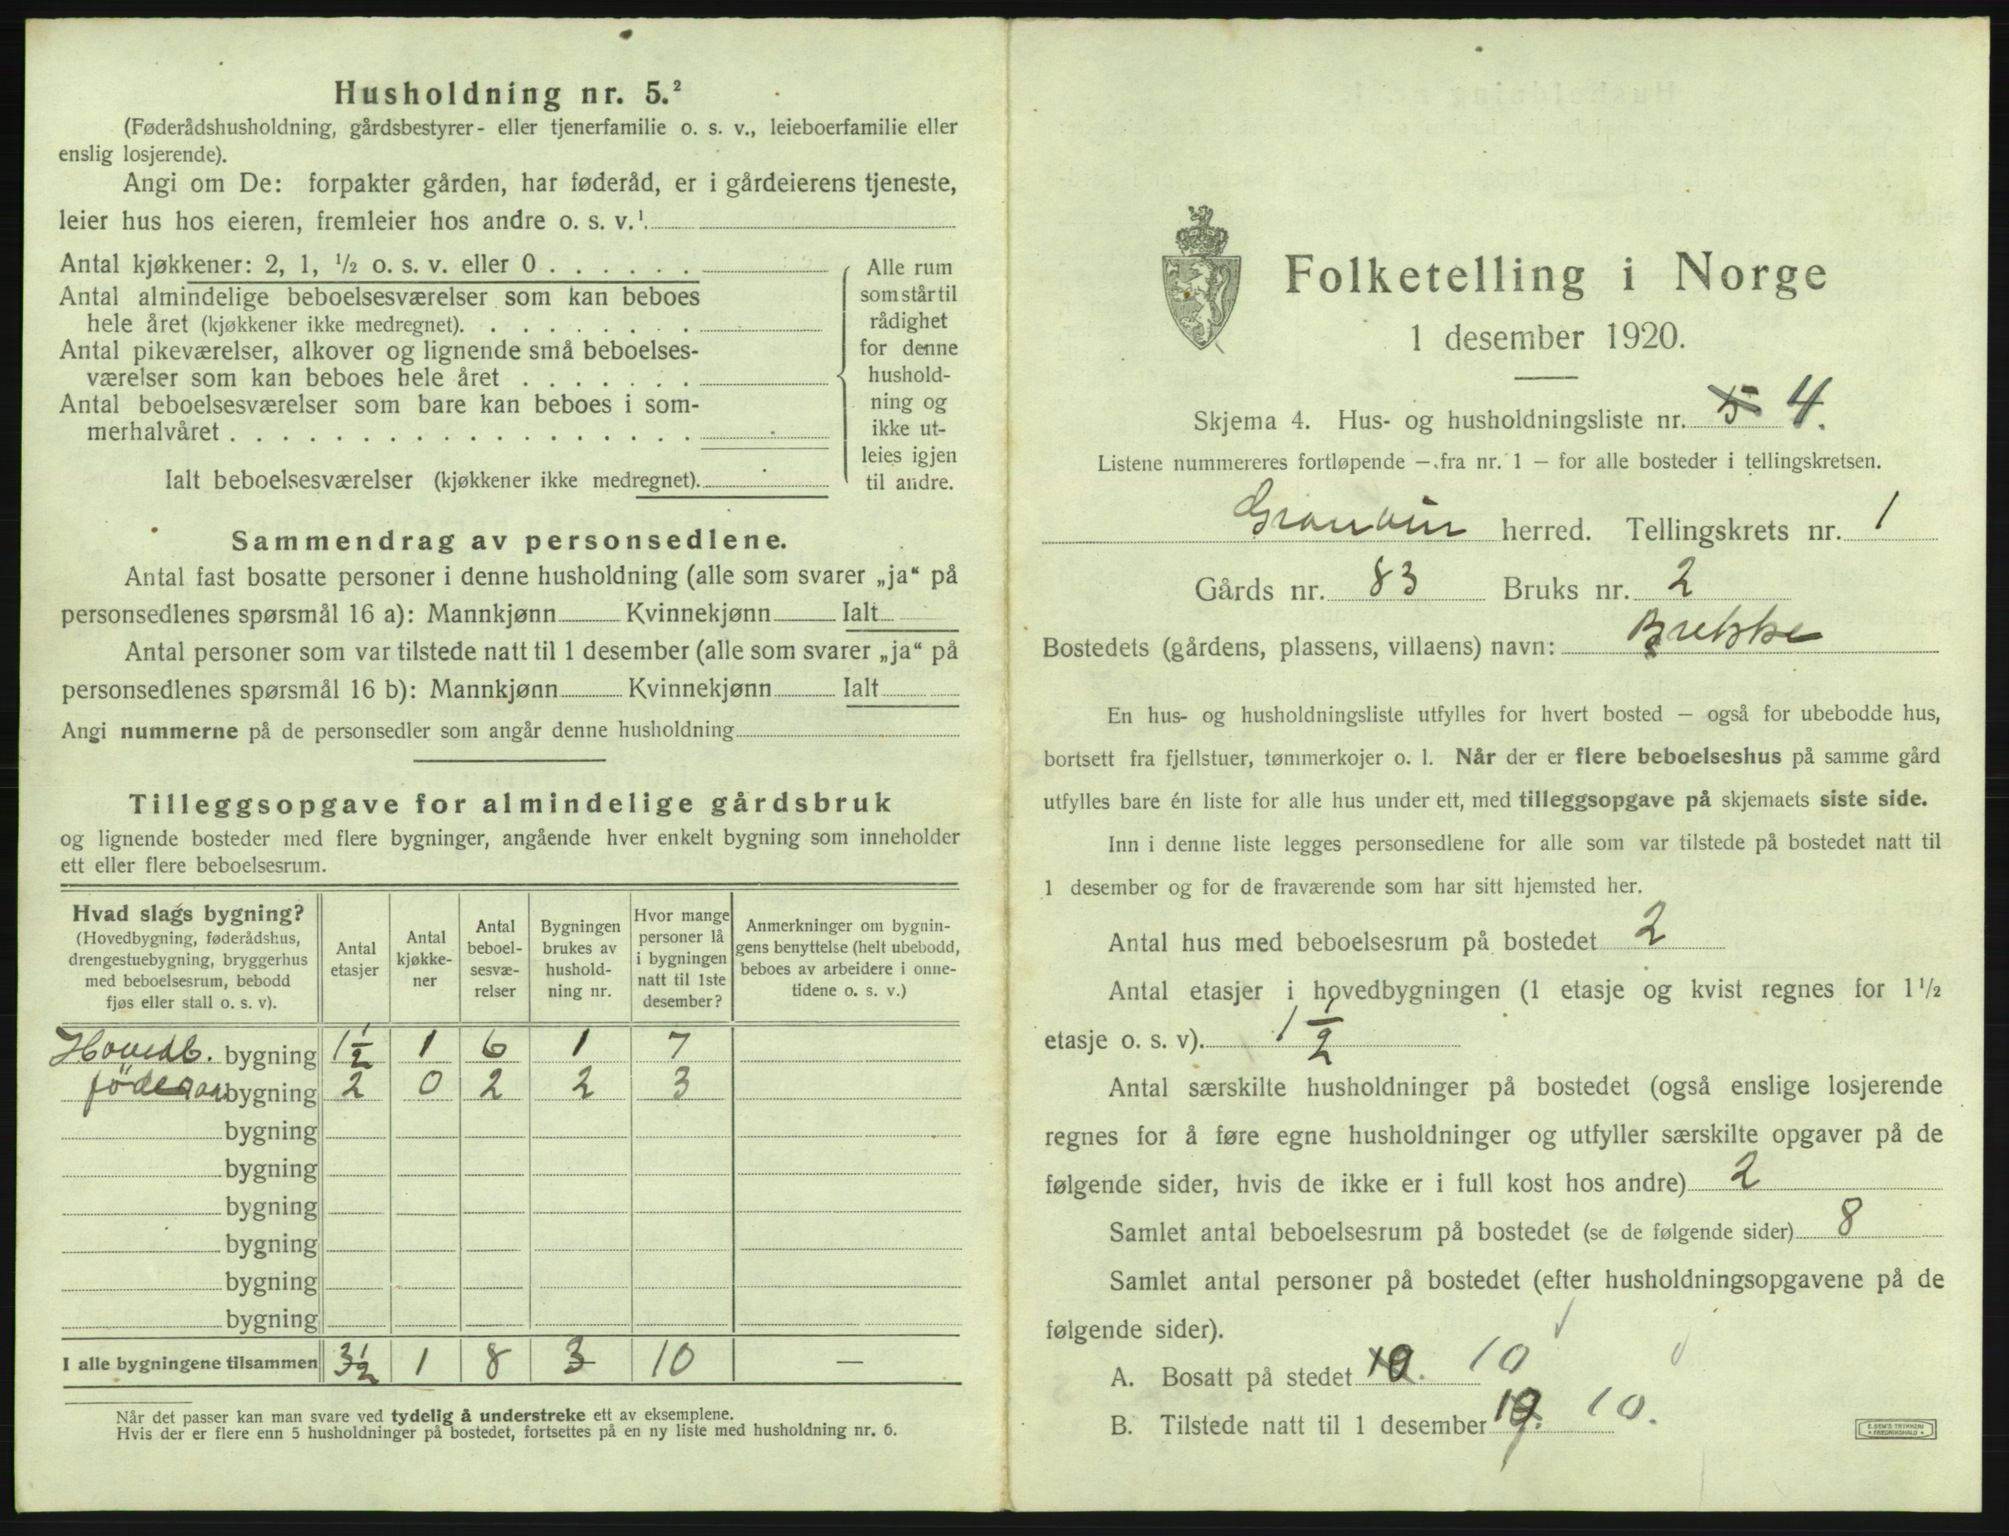 Husholdning nr. 5.²
(Føderådshusholdning, gårdsbestyrer- eller tjenerfamilie o. s. v., leieboerfamilie eller
enslig losjerende).
Angi om De: forpakter gården, har føderåd, er i gårdeierens tjeneste,
leier hus hos eieren, fremleier hos andre o. s. v.¹.
Antal kjøkkener: 2, 1, ½ o. s. v. eller 0 . . . . . .
Antal almindelige beboelsesværelser som kan beboes
hele året (kjøkkener ikke medregnet). . . . . . . . .
Antal pikeværelser, alkover og lignende små beboelses-
værelser som kan beboes hele året . . . . . . .
Antal beboelsesværelser som bare kan beboes i som-
merhalvåret . . . . . . . . . . . . . . . . . .
Ialt beboelsesværelser (kjøkkener ikke medregnet).
Alle rum
som står til
rådighet
for denne
hushold-
ning og
ikke ut-
leies igjen
til andre.
Sammendrag av personsedlene.
Antal fast bosatte personer i denne husholdning (alle som svarer „ja“ på
personsedlenes spørsmål 16 a): Mannkjønn Kvinnekjønn Ialt
Antal personer som var tilstede natt til 1 desember (alle som svarer „ja“ på
personsedlenes spørsmål 16 b): Mannkjønn Kvinnekjønn Ialt
Angi nummerne på de personsedler som angår denne husholdning
Tilleggsopgave for almindelige gårdsbruk
og lignende bosteder med flere bygninger, angående hver enkelt bygning som inneholder
ett eller flere beboelsesrum.
Hvad slags bygning?
(Hovedbygning, føderådshus,
drengestuebygning, bryggerhus
med beboelsesrum, bebodd
fjøs eller stall o. s. v).
Antal
etasjer
Antal
kjøkke-
ner
Antal
beboel-
sesvæ-
relser
Bygningen
brukes av
hushold-
ning nr.
Hvor mange
personer lå
i bygningen
natt til 1ste
desember?
Anmerkninger om bygnin-
gens benyttelse (helt ubebodd,
beboes av arbeidere i onne-
tidene o. s. v.)
Hovedb. bygning 1½ 1 6 1 7
bygning 2 0 2 2 3
bygning
bygning
bygning
bygning
bygning
bygning
I alle bygningene tilsammen 3½ 1 8 3 10 —
Når det passer kan man svare ved tydelig å understreke ett av eksemplene.
Hvis der er flere enn 5 husholdninger på bostedet, fortsettes på en ny liste med husholdning nr. 6.
Folketelling i Norge
1 desember 1920.
Skjema 4. Hus- og husholdningsliste nr. 5 4.
Listene nummereres fortløpende — fra nr. 1 — for alle bosteder i tellingskretsen.
Granvin herred. Tellingskrets nr. 1
Gårds nr. 83 Bruks nr. 2
Bostedets (gårdens, plassens, villaens) navn: Brekke
En hus- og husholdningsliste utfylles for hvert bosted — også for ubebodde hus,
bortsett fra fjellstuer, tømmerkojer o. l. Når der er flere beboelseshus på samme gård
utfylles bare én liste for alle hus under ett, med tilleggsopgave på skjemaets siste side.
Inn i denne liste legges personsedlene for alle som var tilstede på bostedet natt til
1 desember og for de fraværende som har sitt hjemsted her.
Antal hus med beboelsesrum på bostedet 2
Antal etasjer i hovedbygningen (1 etasje og kvist regnes for 1½
etasje o. s. v). 1½
Antal særskilte husholdninger på bostedet (også enslige losjerende
regnes for å føre egne husholdninger og utfyller særskilte opgaver på de
følgende sider, hvis de ikke er i full kost hos andre) 2
Samlet antal beboelsesrum på bostedet (se de følgende sider) 8
Samlet antal personer på bostedet (efter husholdningsopgavene på de
følgende sider).
A. Bosatt på stedet 10
B. Tilstede natt til 1 desember 10.